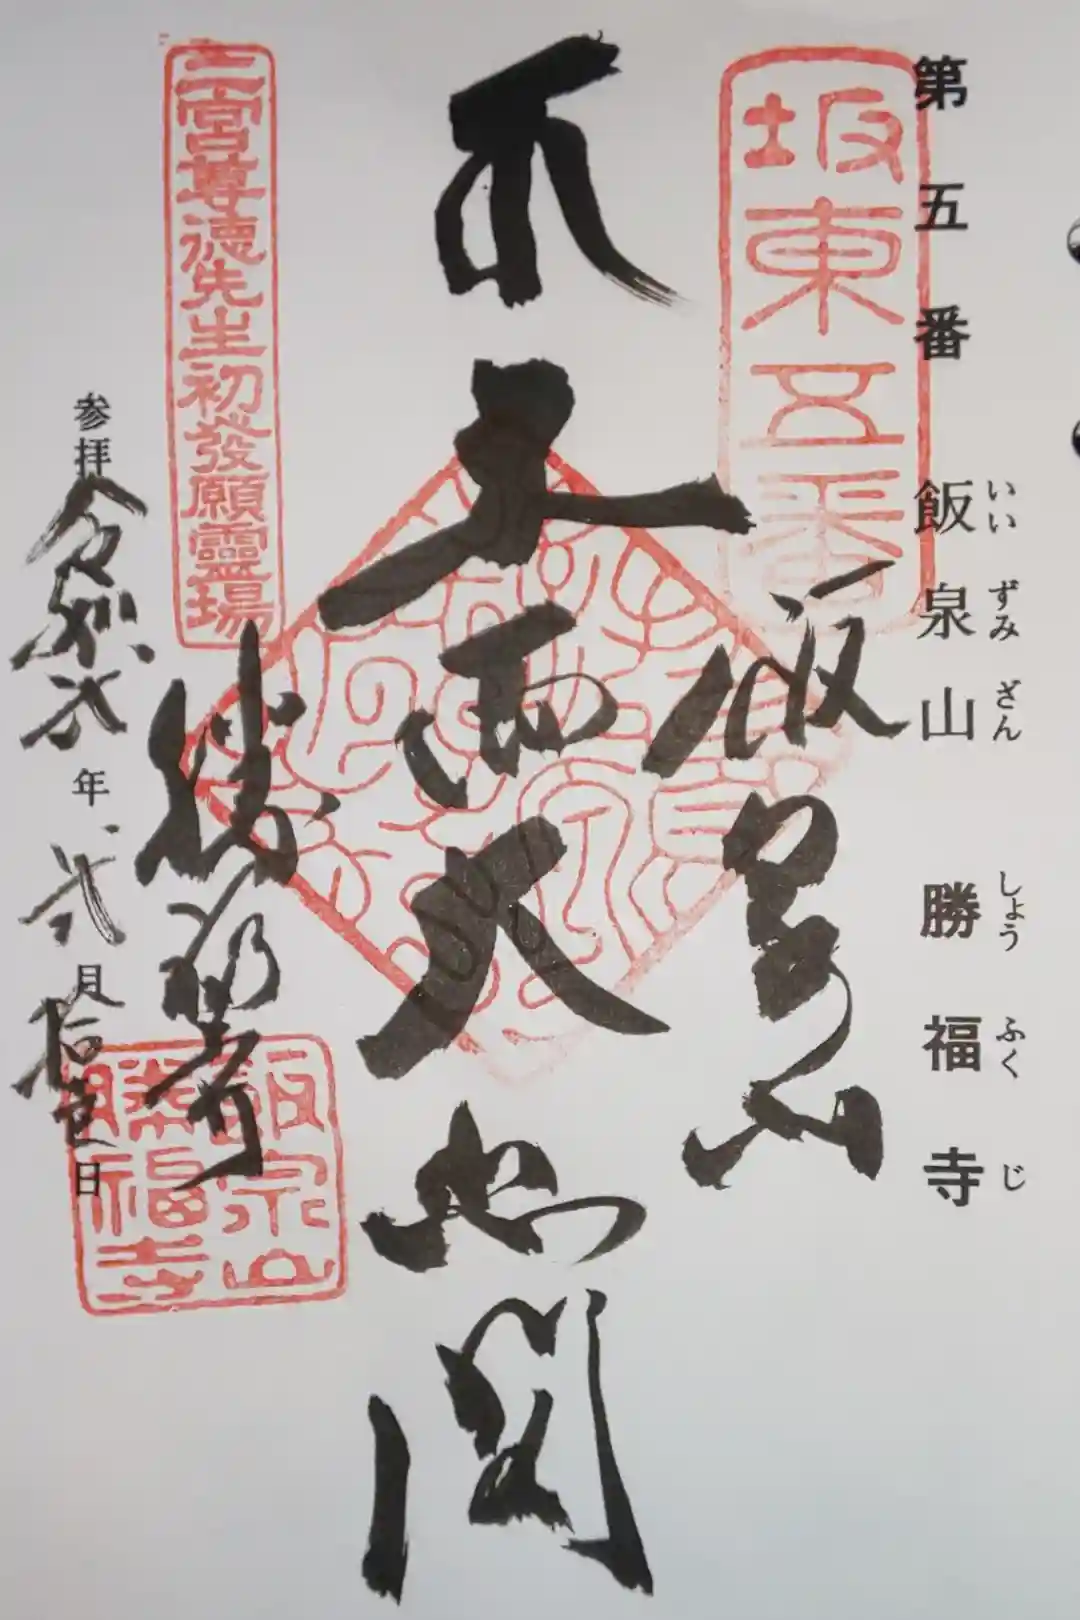 第五番 飯泉山 勝福寺
いいずみざん しょうふくじ
坂東五番
飯泉山
十一面大悲閣
勝福寺
二宮尊徳先生初發願靈場
飯泉山勝福寺
参拝 令和弐年 弐月 日